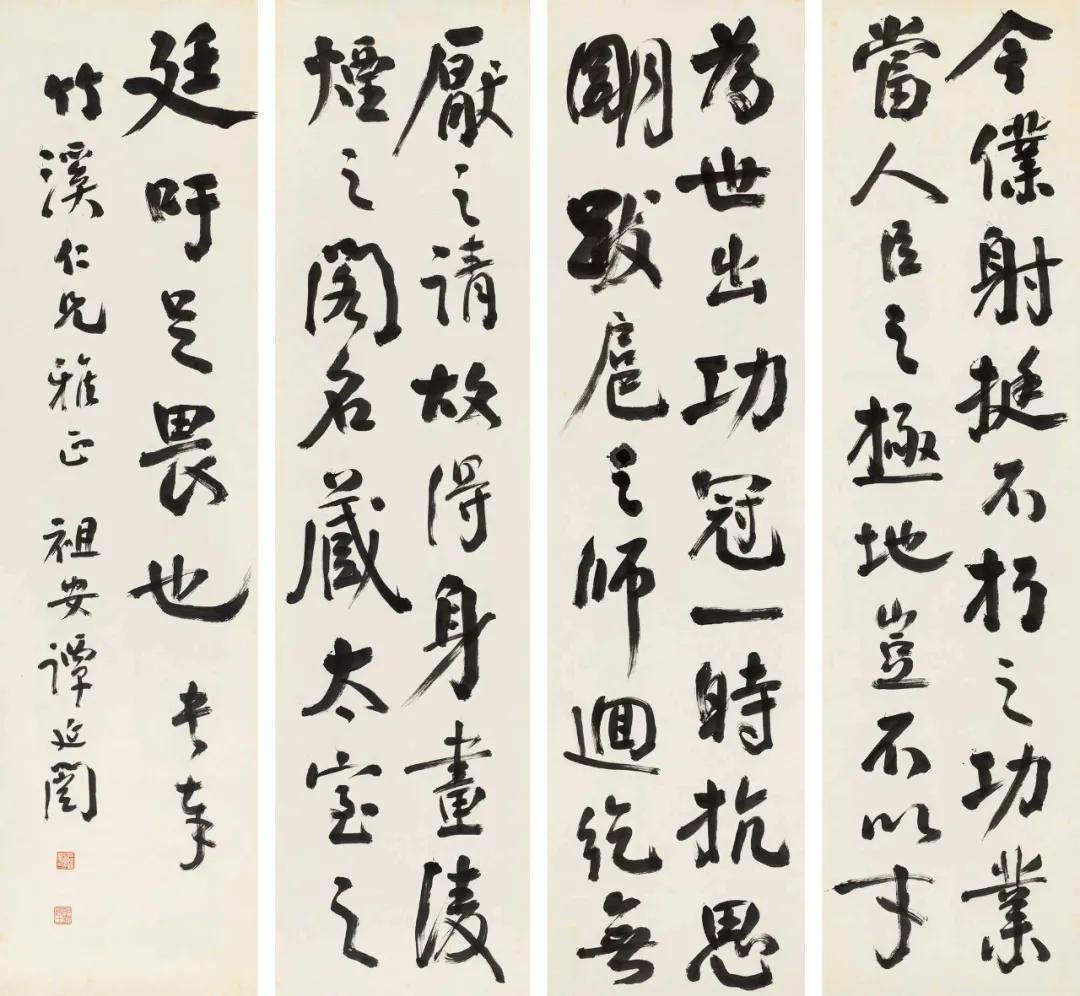 今僕射挺不朽之功業
當人臣之極地豈不以才
為世出功冠一時抗思
明跋扈之師迴紇無
厭之請故得身畫淩
煙之閣名藏太室之
廷吁足畏也 書奉
竹溪仁兄雅正 祖安譚延闓